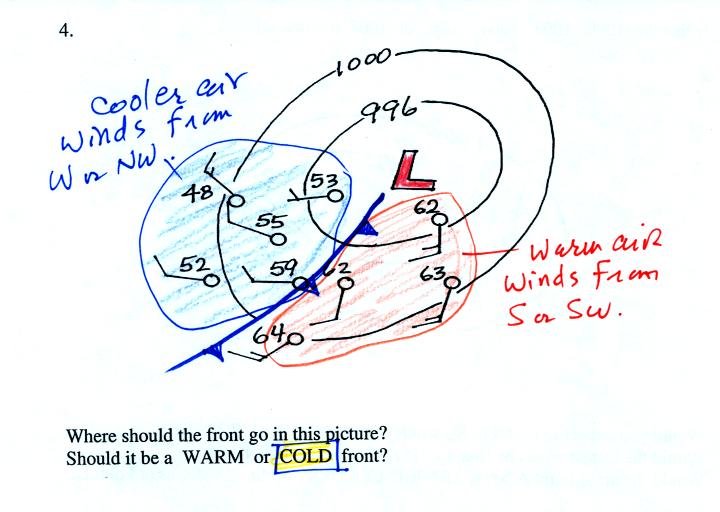 4.
1000
996
Cooler air
winds from
W or NW.
L
48
53
62
55
52
59
62
63
64
Warm air
winds from
S or SW.
Where should the front go in this picture?
Should it be a WARM or COLD front?